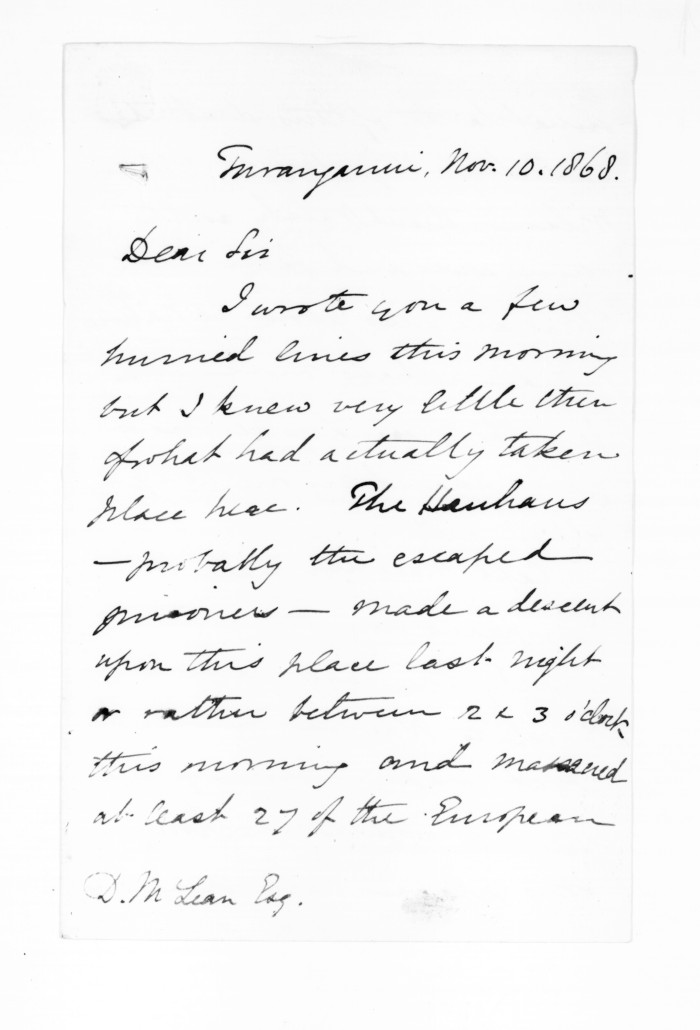 Turanganui, Nov. 10. 1868.
Dear Sir
I wrote you a few
hurried lines this morning
but I knew very little then
of what had actually taken
place here. The Hauhaus
— probably the escaped
prisoners — made a descent
upon this place last night
or rather between 2 & 3 o'clock
this morning and massacred
at least 27 of the European
D. McLean Esq.